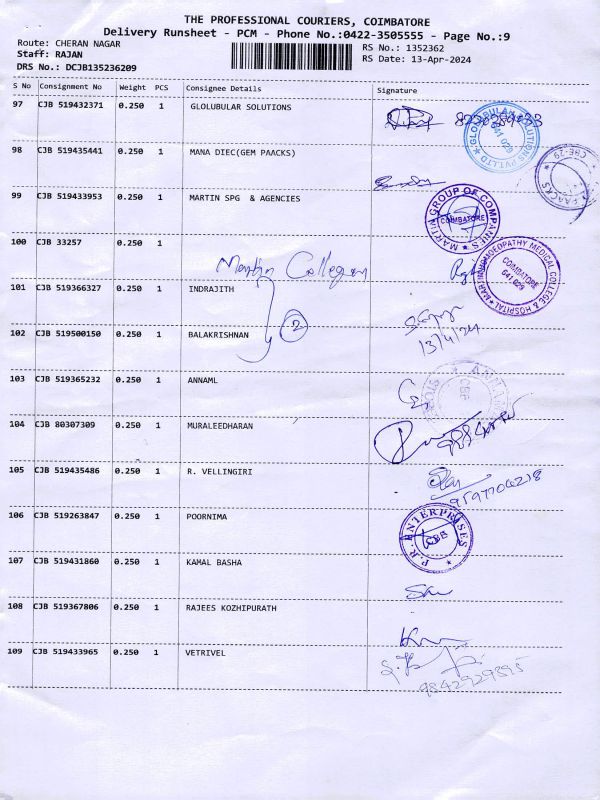 THE PROFESSIONAL COURIERS, COIMBATORE
Delivery Runsheet - PCM - Phone No.:0422-3505555 - Page No.:9
Route: CHERAN NAGAR RS No.: 1352362
Staff: RAJAN RS Date: 13-Apr-2024
DRS No.: DCJB135236209
S No Consignment No Weight PCS Consignee Details Signature
97 CJB 519432371 0.250 1 GLOLUBULAR SOLUTIONS
98 CJB 519435441 0.250 1 MANA DIEC(GEM PAACKS)
CBE-29
PAACKS
99 CJB 519433953 0.250 1 MARTIN SPG & AGENCIES
MARTIN GROUP OF COMPANIES
COIMBATORE
100 CJB 33257 0.250 1
Martin Collegein
HOMOEOPATHY MEDICAL COLLEGE & HOSPITAL
COIMBATORE
641 029
101 CJB 519366327 0.250 1 INDRAJITH
2
102 CJB 519500150 0.250 1 BALAKRISHNAN
13/4/24
103 CJB 519365232 0.250 1 ANNAML
104 CJB 80307309 0.250 1 MURALEEDHARAN
105 CJB 519435486 0.250 1 R. VELLINGIRI
106 CJB 519263847 0.250 1 POORNIMA
P.R. ENTERPRISES
107 CJB 519431860 0.250 1 KAMAL BASHA
108 CJB 519367806 0.250 1 RAJEES KOZHIPURATH
109 CJB 519433965 0.250 1 VETRIVEL
9842929595